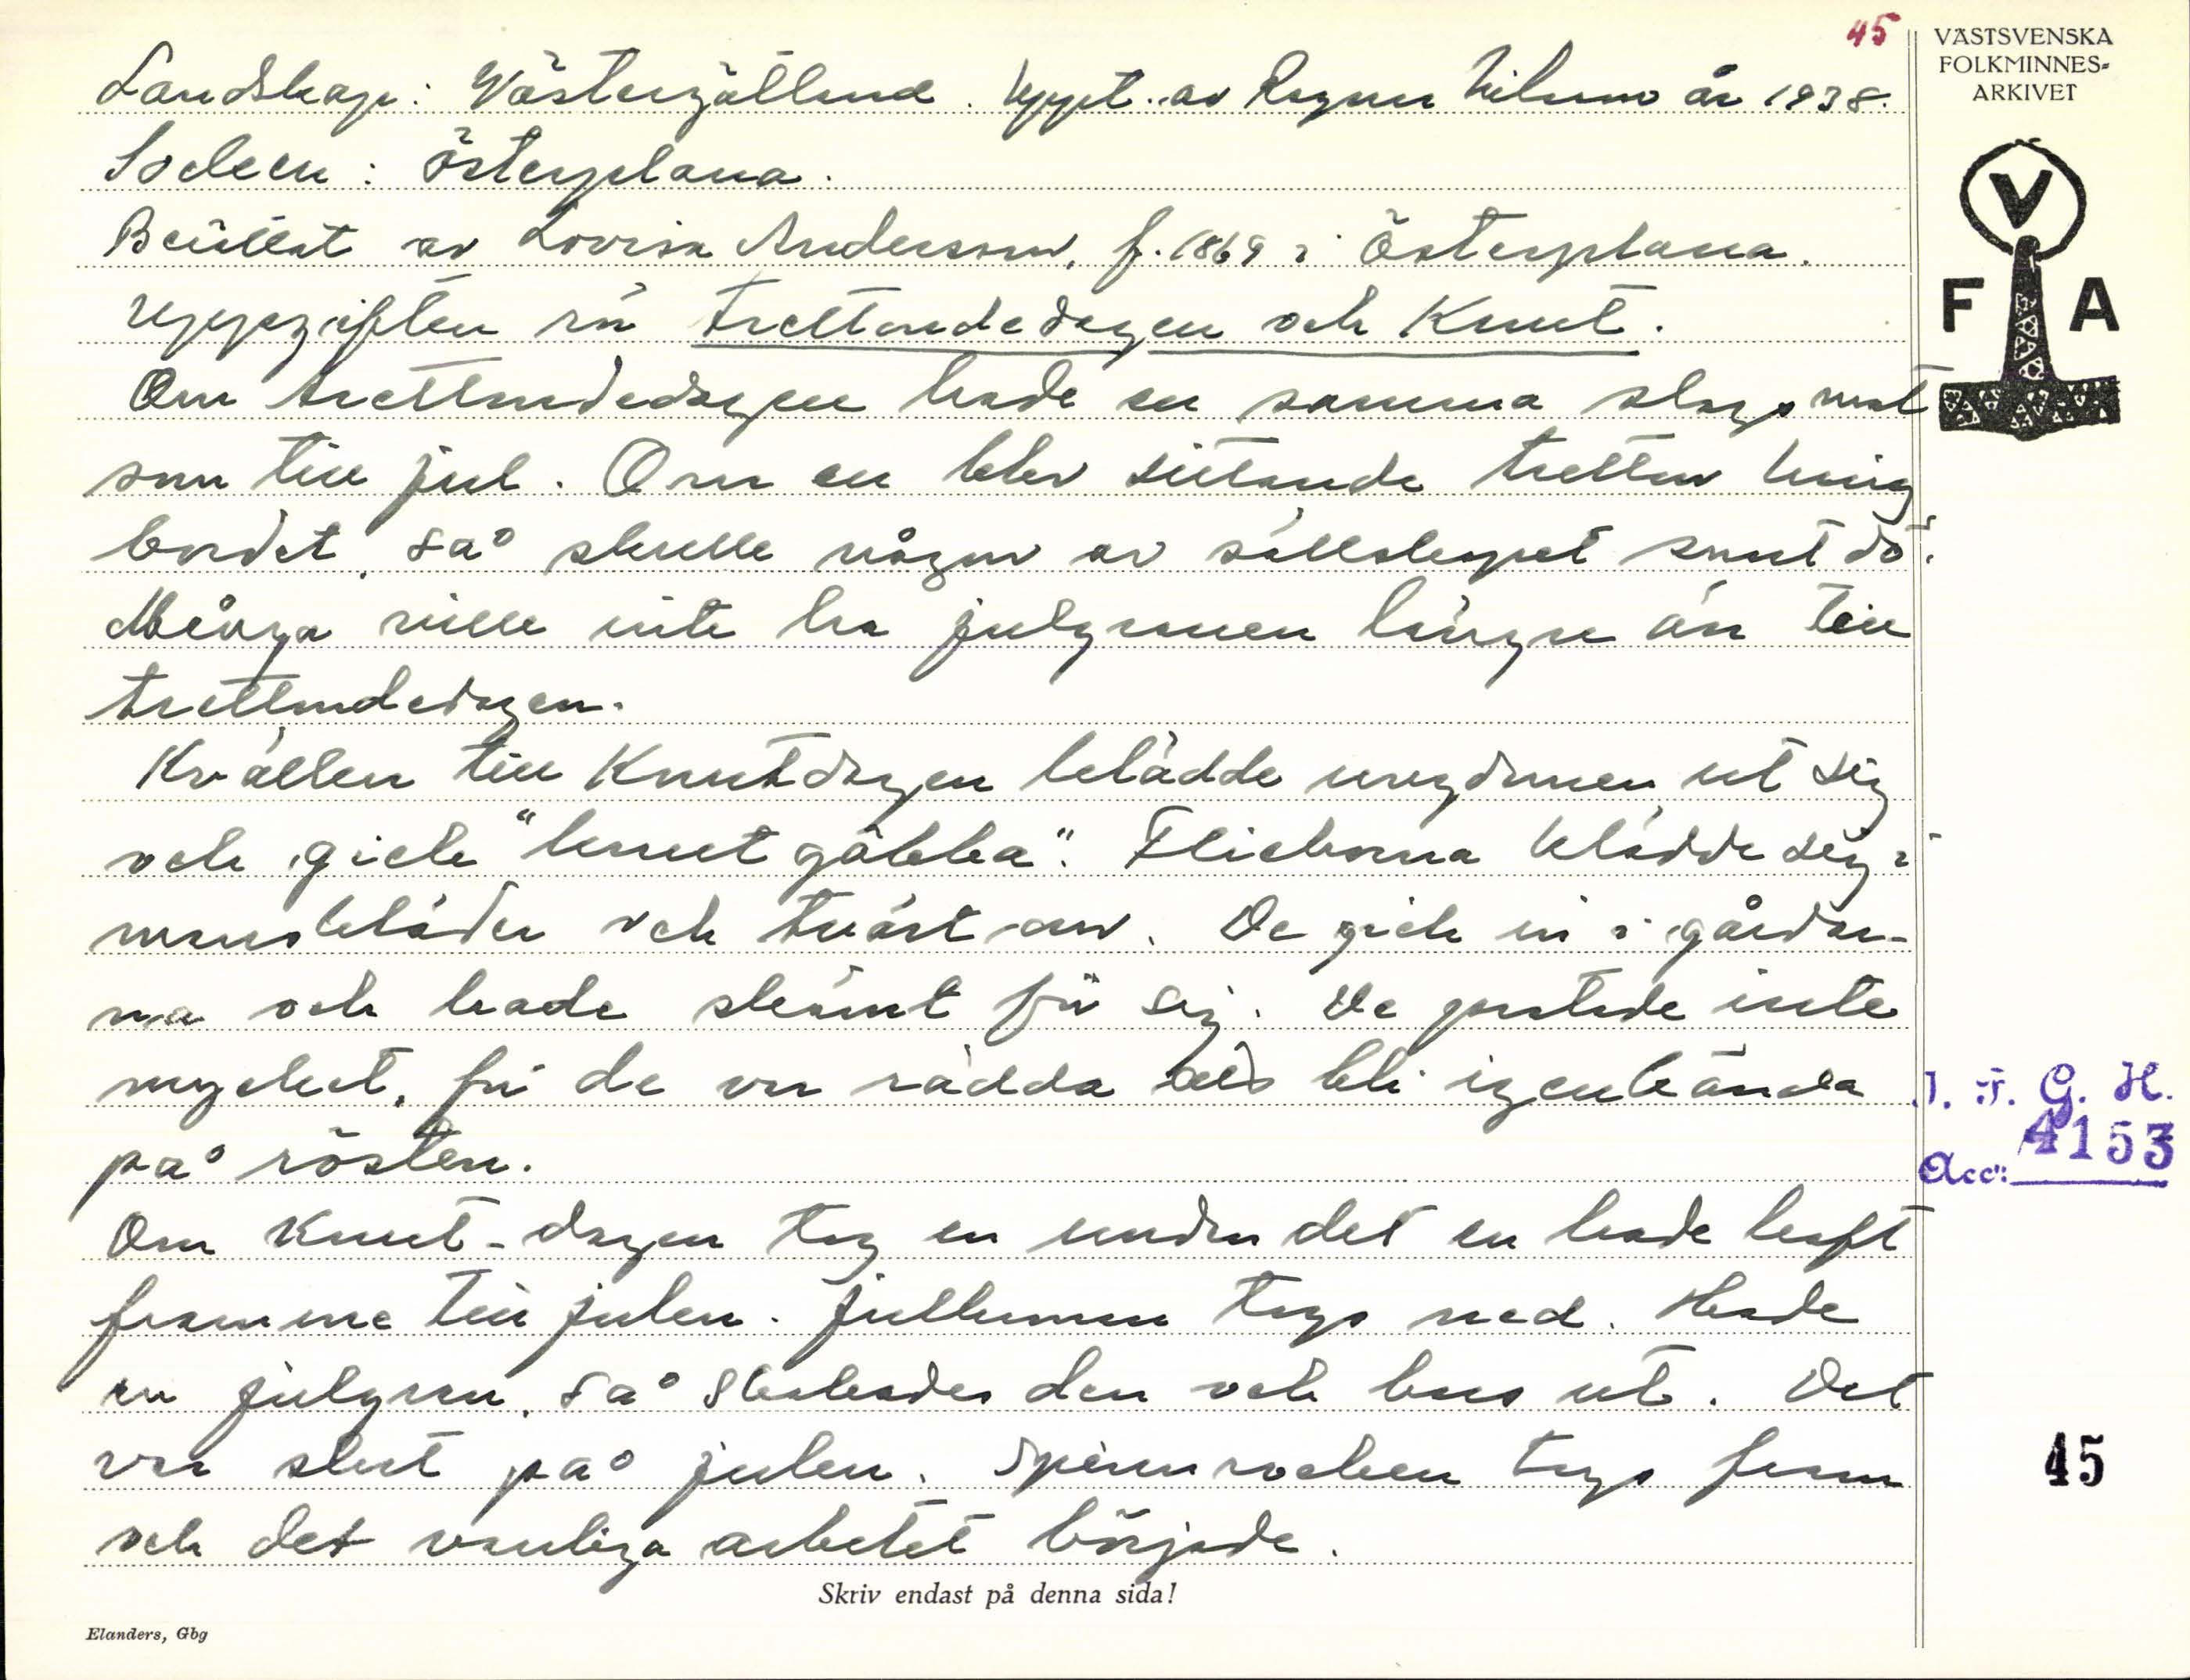 45
VÄSTSVENSKA
FOLKMINNES-
ARKIVET
Landskap: Västergötland. Uppt. av Ragnar Nilsson år 1938.
Socken: Österplana.
Berättat av Lovisa Andersson, f. 1869 i Österplana.
Uppgiften rör trettondedagen och Knut.
Om trettondedagen hade en samma slags mat
som till jul. Om en blev sittande tretton kring
bordet, så skulle någon av sällskapet snart dö.
Många ville inte ha julgranen längre än till
trettondedagen.
Kvällen till Knutdagen klädde ungdomen ut sig
och gick "knutgöbba". Flickorna klädde sig i
manskläder och tvärt om. De gick in i gårdar-
na och hade skämt för sig. De pratade inte
mycket, för de var rädda att bli igenkända
på rösten.
Om Knut-dagen tog en undan det en hade haft
framme till julen. Julhalmen togs ned. Hade
en julgran, så skakades den och bars ut. Det
var slut på julen. Spinnrocken togs fram
och det vanliga arbetet började.
V
F A
I. F. G. H.
Acc:
4153
45
Skriv endast på denna sida!
Elanders, Gbg